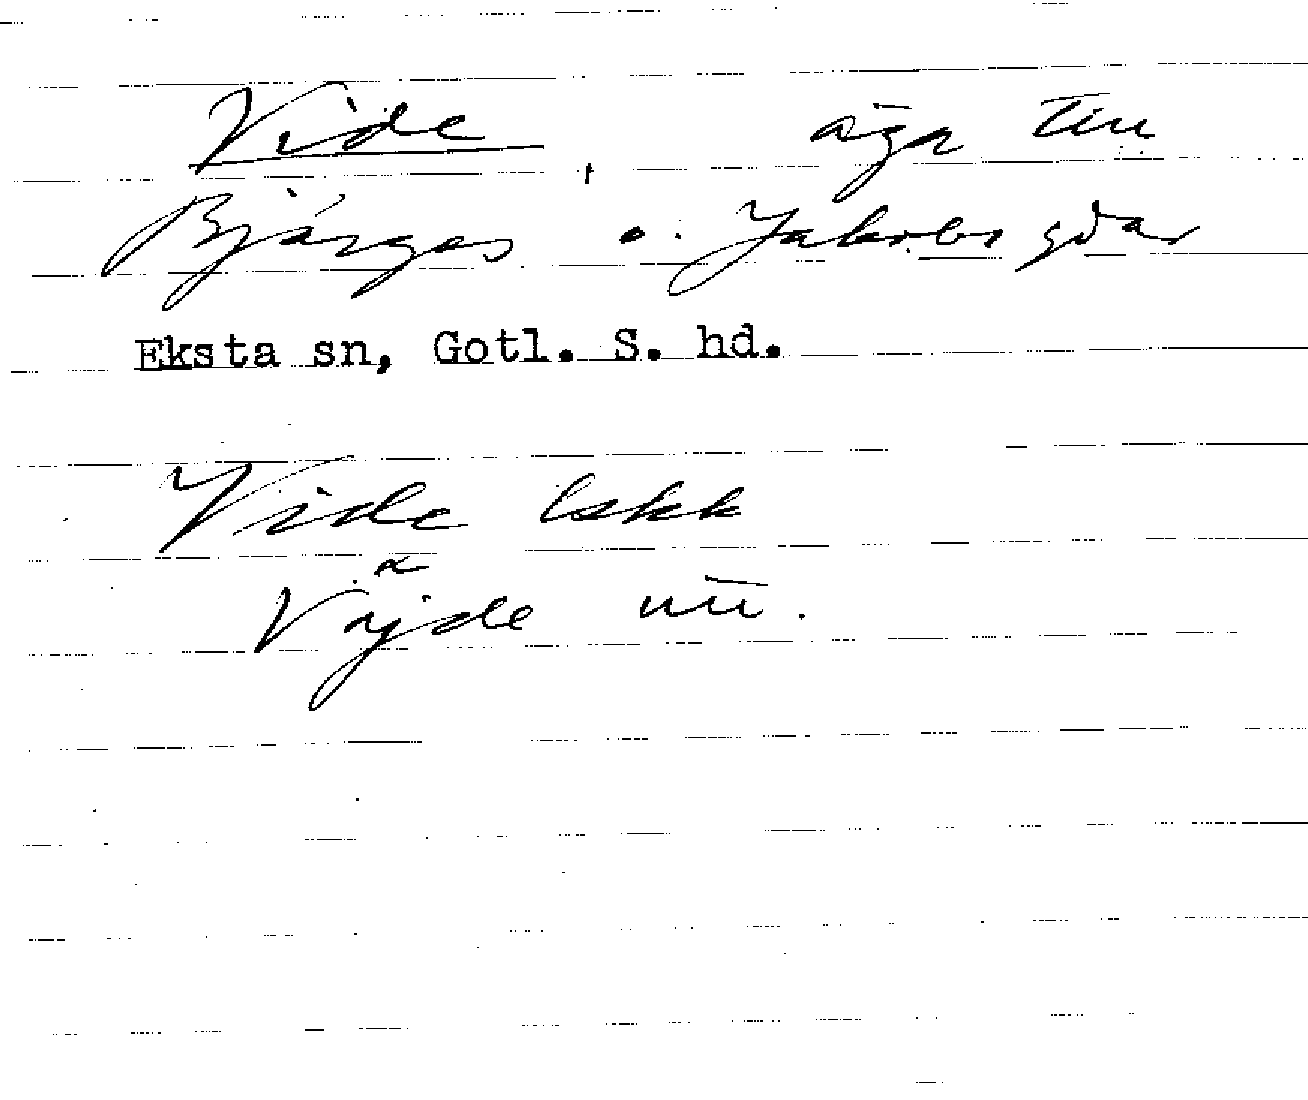 Vide, äga till
Bjärges o. Jakobs gdar
Eksta sn, Gotl. S. hd.
Vide lskk
Väjde utt.